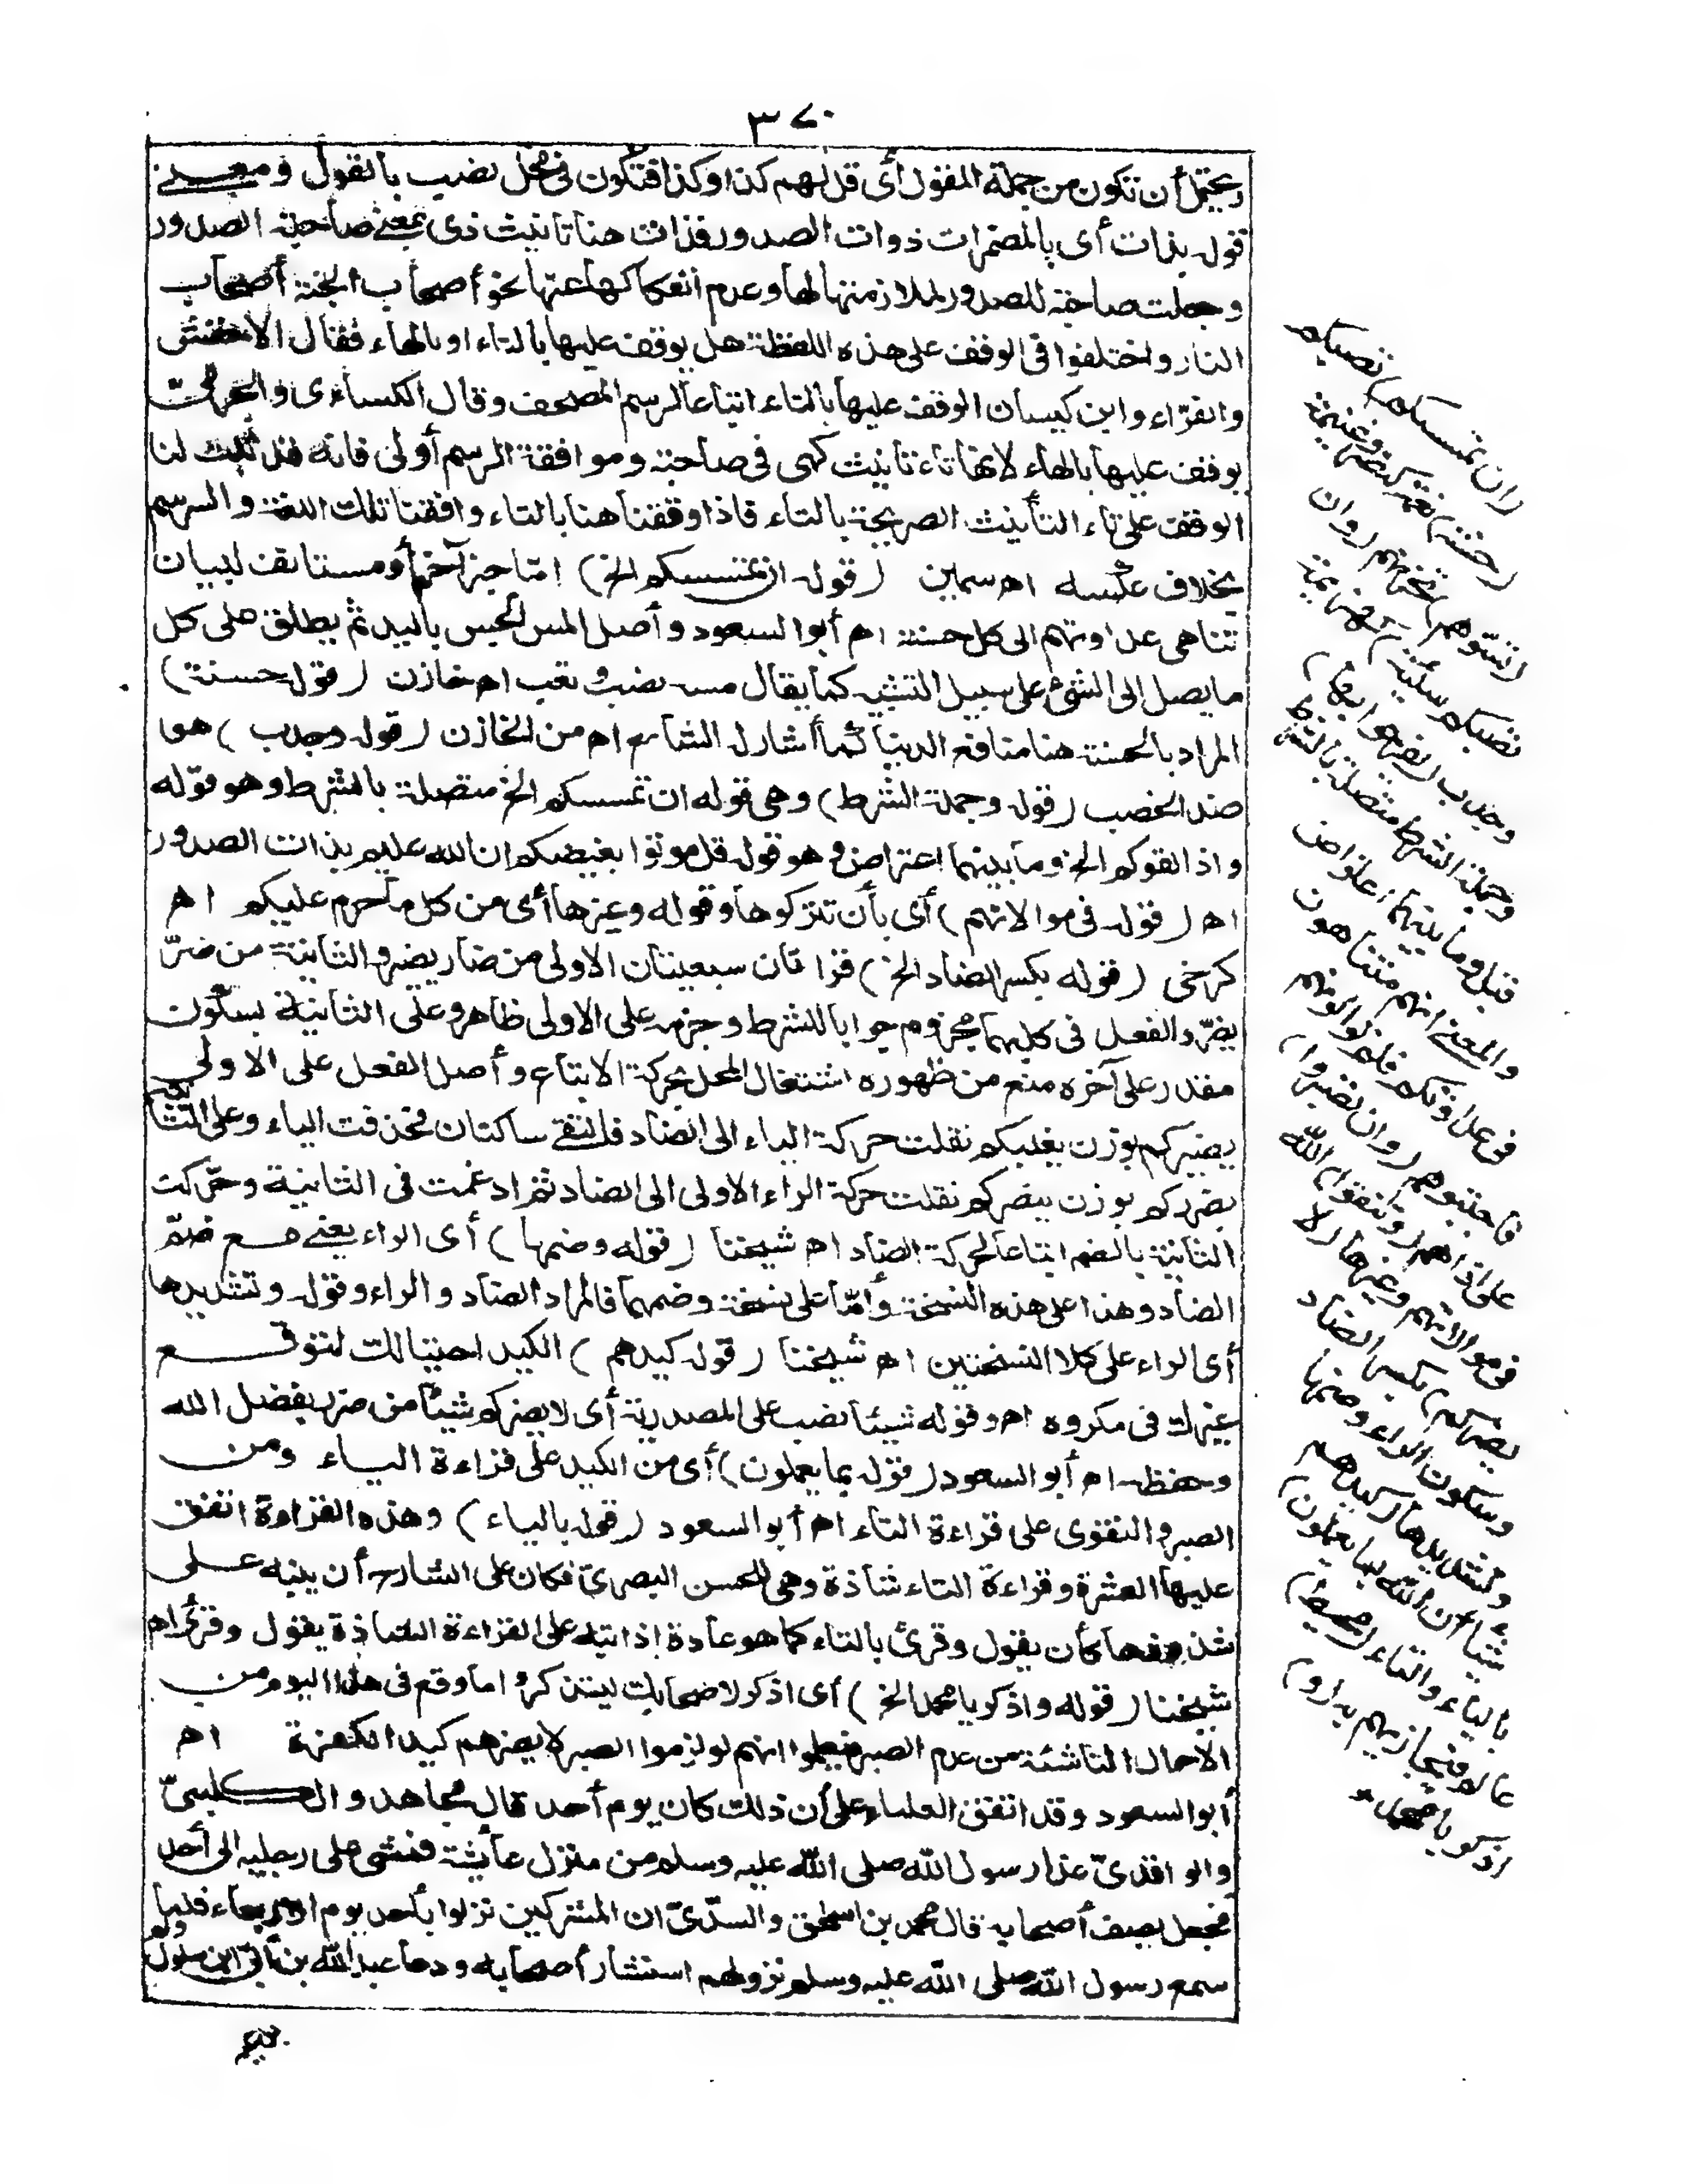 ٣٧٠
ويحتمل أن تكون من جملة المقول أى قل لهم كذا وكذا فتكون فى محل نصب بالقول ومعنى
قوله بذات أى بالمضمرات ذوات الصدور فذات هنا تأنيث ذى بمعنى صاحبة الصدور
وجعلت صاحبة للصدور لملازمتها لها وعدم انفكاكها عنها نحو أصحاب الجنة أصحاب
النار واختلفوا فى الوقف على هذه اللفظة هل يوقف عليها بالتاء او بالهاء فقال الأخفش
والفرّاء وابن كيسان الوقف عليها بالتاء اتباعا لرسم المصحف وقال الكساءى والجرمىّ
يوقف عليها بالهاء لانها تاء تأنيث كهى فى صاحبة وموافقة الرسم أولى فانه قد ثبت لنا
الوقف على تاء التأنيث الصريحة بالتاء فاذا وقفنا هنا بالتاء وافقنا تلك اللغة والرسم
بخلاف عكسه اه سمين (قوله ان تمسسكم الخ) امّا خبر آخر أو مستانف لبيان
تناهى عداوتهم الى كل حسنة اه أبو السعود وأصل المس الجس باليد ثم يطلق على كل
ما يصل الى الشئ على سبيل التشبيه كما يقال مسه نصب وتعب اه خازن (قوله حسنة)
المراد بالحسنة هنا منافع الدنيا كما أشار له الشارح اه من الخازن (قوله وجدب) هو
ضد الخصب (قوله وجملة الشرط) وهى قوله ان تمسسكم الخ متصلة بالشرط وهو قوله
واذا لقوكم الخ وما بينهما اعتراض وهو قوله قل موتوا بغيظكم ان الله عليم بذات الصدور
اه (قوله فى موالاتهم) أى بأن تتركوها وقوله وغيرها أى من كل ما حرم عليكم اه
كرخى (قوله بكسر الضاد الخ) قراءتان سبعيتان الاولى من ضار يضير والثانية من ضرّ
يضرّ والفعل فى كليهما مجزوم جوابا للشرط وجزمه على الاولى ظاهر وعلى الثانية بسكون
مقدر على آخره منع من ظهوره اشتغال المحل بحركة الاتباع وأصل الفعل على الاولى
يضيركم بوزن يغلبكم نقلت حركة الياء الى الضاد فالتقى ساكنان فحذفت الياء وعلى الثانية
يضرركم بوزن ينصركم نقلت حركة الراء الاولى الى الضاد ثم ادغمت فى الثانية وحرّكت
الثانية بالضم اتباعا لحركة الضاد اه شيخنا (قوله وضمها) أى الراء يعنى مع ضمّ
الضاد وهذا على هذه النسخة وأمّا على نسخة وضمهما فالمراد الضاد والراء وقوله وتشديدها
أى الراء على كلا النسختين اه شيخنا (قوله كيدهم) الكيد احتيالك لتوقع
غيرك فى مكروه اه وقوله شيئا نصب على المصدرية أى لا يضركم شيئا من ضرر بفضل الله
وحفظه اه أبو السعود (قوله بما يعملون) أى من الكيد على قراءة الياء ومن
الصبر والتقوى على قراءة التاء اه أبو السعود (قوله بالياء) وهذه القراءة اتفق
عليها العشرة وقراءة التاء شاذة وهى للحسن البصرىّ فكان على الشارح أن ينبه على
شذوذها كأن يقول وقرئ بالتاء كما هو عادة إذا نبه على القراءة الشاذة يقول وقرئ اه
شيخنا (قوله واذكر يا محمد الخ) أى اذكر لاصحابك ليتذكروا ما وقع فى هذا اليوم من
الاحوال الناشئة من عدم الصبر فيعلموا انهم لو لزموا الصبر لا يضرهم كيد الكفرة اه
أبو السعود وقد اتفق العلماء على أن ذلك كان يوم أحد قال مجاهد والكلبىّ
والواقدىّ غدا رسول الله صلى الله عليه وسلم من منزل عائشة فمشى على رجليه الى أحد
فجعل يصف أصحابه قال محمد بن اسحق والسدّىّ ان المشركين نزلوا بأحد يوم الاربعاء فلما
سمع رسول الله صلى الله عليه وسلم نزولهم استشار أصحابه ودعا عبد الله بن أبىّ ابن سلول
ولم
(ان تمسسكم) تصبكم
(حسنة) نعمة كنصر وغنيمة
(تسؤهم) تحزنهم (وان
تصبكم سيئة) كهزيمة
وجدب (يفرحوا بها)
وجملة الشرط متصلة بالشرط
قبل وما بينهما اعتراض
والمعنى انهم متناهون
فى عداوتكم فلم توالونهم
فاجتنبوهم (وان تصبروا)
على اذاهم (وتتقوا) الله
فى موالاتهم وغيرها (لا
يضركم) بكسر الضاد
وسكون الراء وضمها
وتشديدها (كيدهم
شيئا ان الله بما يعملون)
بالياء والتاء (محيط)
عالم فيجازيهم به (و)
اذكر يا محمد